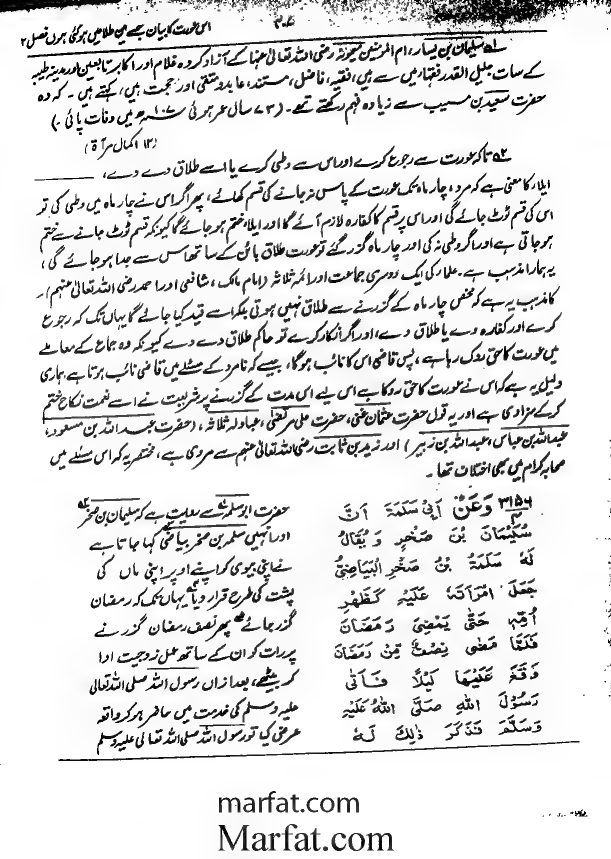 اس عورت کا بیان جسے تین طلاقیں ہو گئی ہوں فصل ۲
۳۰۶
۵۱ سلیمان بن یسار، ام المومنین میمونہ رضی اللہ تعالیٰ عنہا کے آزاد کردہ غلام اور اکابر تابعین اور مدینہ طیبہ
کے سات جلیل القدر فقہاء میں سے ہیں، فقیہ، فاضل، مستند، عابد و متقی اور حجت ہیں، کہتے ہیں۔ کہ وہ
حضرت سعید بن مسیب سے زیادہ فہم رکھتے تھے۔ (۷۳ سال عمر ہوئی ۱۰۷ھ میں وفات پائی۔)
(۱۲ اکمال مرآۃ)
۵۲ تاکہ عورت سے رجوع کرے اور اس سے وطی کرے یا اسے طلاق دے دے،
ایلاء کا معنی ہے کہ مرد، چار ماہ تک عورت کے پاس نہ جانے کی قسم کھائے، پھر اگر اس نے چار ماہ میں وطی کی تو
اس کی قسم ٹوٹ جائے گی اور اس پر قسم کا کفارہ لازم آئے گا اور ایلاء ختم ہو جائے گا کیونکہ قسم ٹوٹ جانے سے ختم
ہو جاتی ہے اور اگر وطی نہ کی اور چار ماہ گزر گئے تو عورت طلاق بائن کے ساتھ اس سے جدا ہو جائے گی،
یہ ہمارا مذہب ہے۔ علماء کی ایک دوسری جماعت اور ائمہ ثلاثہ (امام مالک، شافعی اور احمد رضی اللہ تعالیٰ عنہم)۔
کا مذہب یہ ہے کہ محض چار ماہ کے گزرنے سے طلاق نہیں ہوتی بلکہ اسے قید کیا جائے گا یہاں تک کہ رجوع
کرے اور کفارہ دے یا طلاق دے، اور اگر انکار کرے تو حاکم طلاق دے دے کیونکہ وہ جماع کے معاملے
میں عورت کا حق روک رہا ہے، پس قاضی اس کا نائب ہوگا، جیسے کہ نامرد کے مسئلے میں قاضی نائب ہوتا ہے ہماری
دلیل یہ ہے کہ اس نے عورت کا حق روکا ہے اس لیے اس مدت کے گزرنے پر شریعت نے اسے نعمت نکاح ختم
کر کے سزا دی ہے اور یہ قول حضرت عثمان غنی، حضرت علی مرتضیٰ، عبادلہ ثلاثہ، (حضرت عبد اللہ بن مسعود،
عبد اللہ بن عباس، عبد اللہ بن زبیر) اور زید بن ثابت رضی اللہ تعالیٰ عنہم سے مروی ہے، مختصر یہ کہ اس مسئلے میں
صحابہ کرام میں بھی اختلاف تھا۔
۳۱۵۶/۳ وَعَنْ أَبِيْ سَلَمَةَ أَنَّ
سُلَيْمَانَ بْنَ صَخْرٍ وَيُقَالُ
لَهُ سَلَمَةُ بْنُ صَخْرٍ الْبَيَاضِيُّ
جَعَلَ امْرَأَتَهُ عَلَيْهِ كَظَهْرِ
أُمِّهِ حَتّٰى يَمْضِيَ رَمَضَانُ
فَلَمَّا مَضٰى نِصْفٌ مِّنْ رَمَضَانَ
وَقَعَ عَلَيْهَا لَيْلًا فَأَتٰى
رَسُوْلَ اللهِ صَلَّى اللهُ عَلَيْهِ
وَسَلَّمَ فَذَكَرَ ذٰلِكَ لَهُ
حضرت ابو سلمہ سے روایت ہے کہ سلیمان بن صخر
اور انہیں سلمہ بن صخر بیاضی کہا جاتا ہے
نے اپنی بیوی کو اپنے اوپر اپنی ماں کی
پشت کی طرح قرار دیا یہاں تک کہ رمضان
گزر جائے پھر نصف رمضان گزرنے
پر رات کو ان کے ساتھ عمل زوجیت ادا
کر بیٹھے، بعد ازاں رسول اللہ صلی اللہ تعالیٰ
علیہ وسلم کی خدمت میں حاضر ہو کر واقعہ
عرض کیا تو رسول اللہ صلی اللہ تعالیٰ علیہ وسلم
marfat.com
Marfat.com